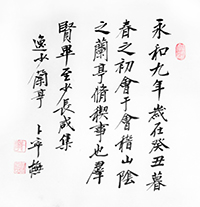 永和九年歲在癸丑暮
春之初會于會稽山陰
之蘭亭脩禊事也羣
賢畢至少長咸集
逸少蘭亭